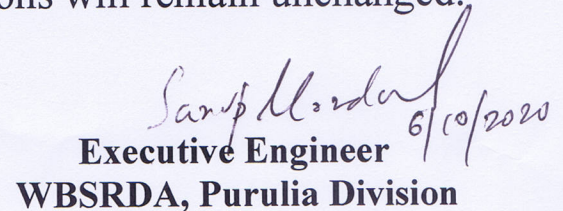 ons will remain unchanged.
Sanup Mondal
6/10/2020
Executive Engineer
WBSRDA, Purulia Division